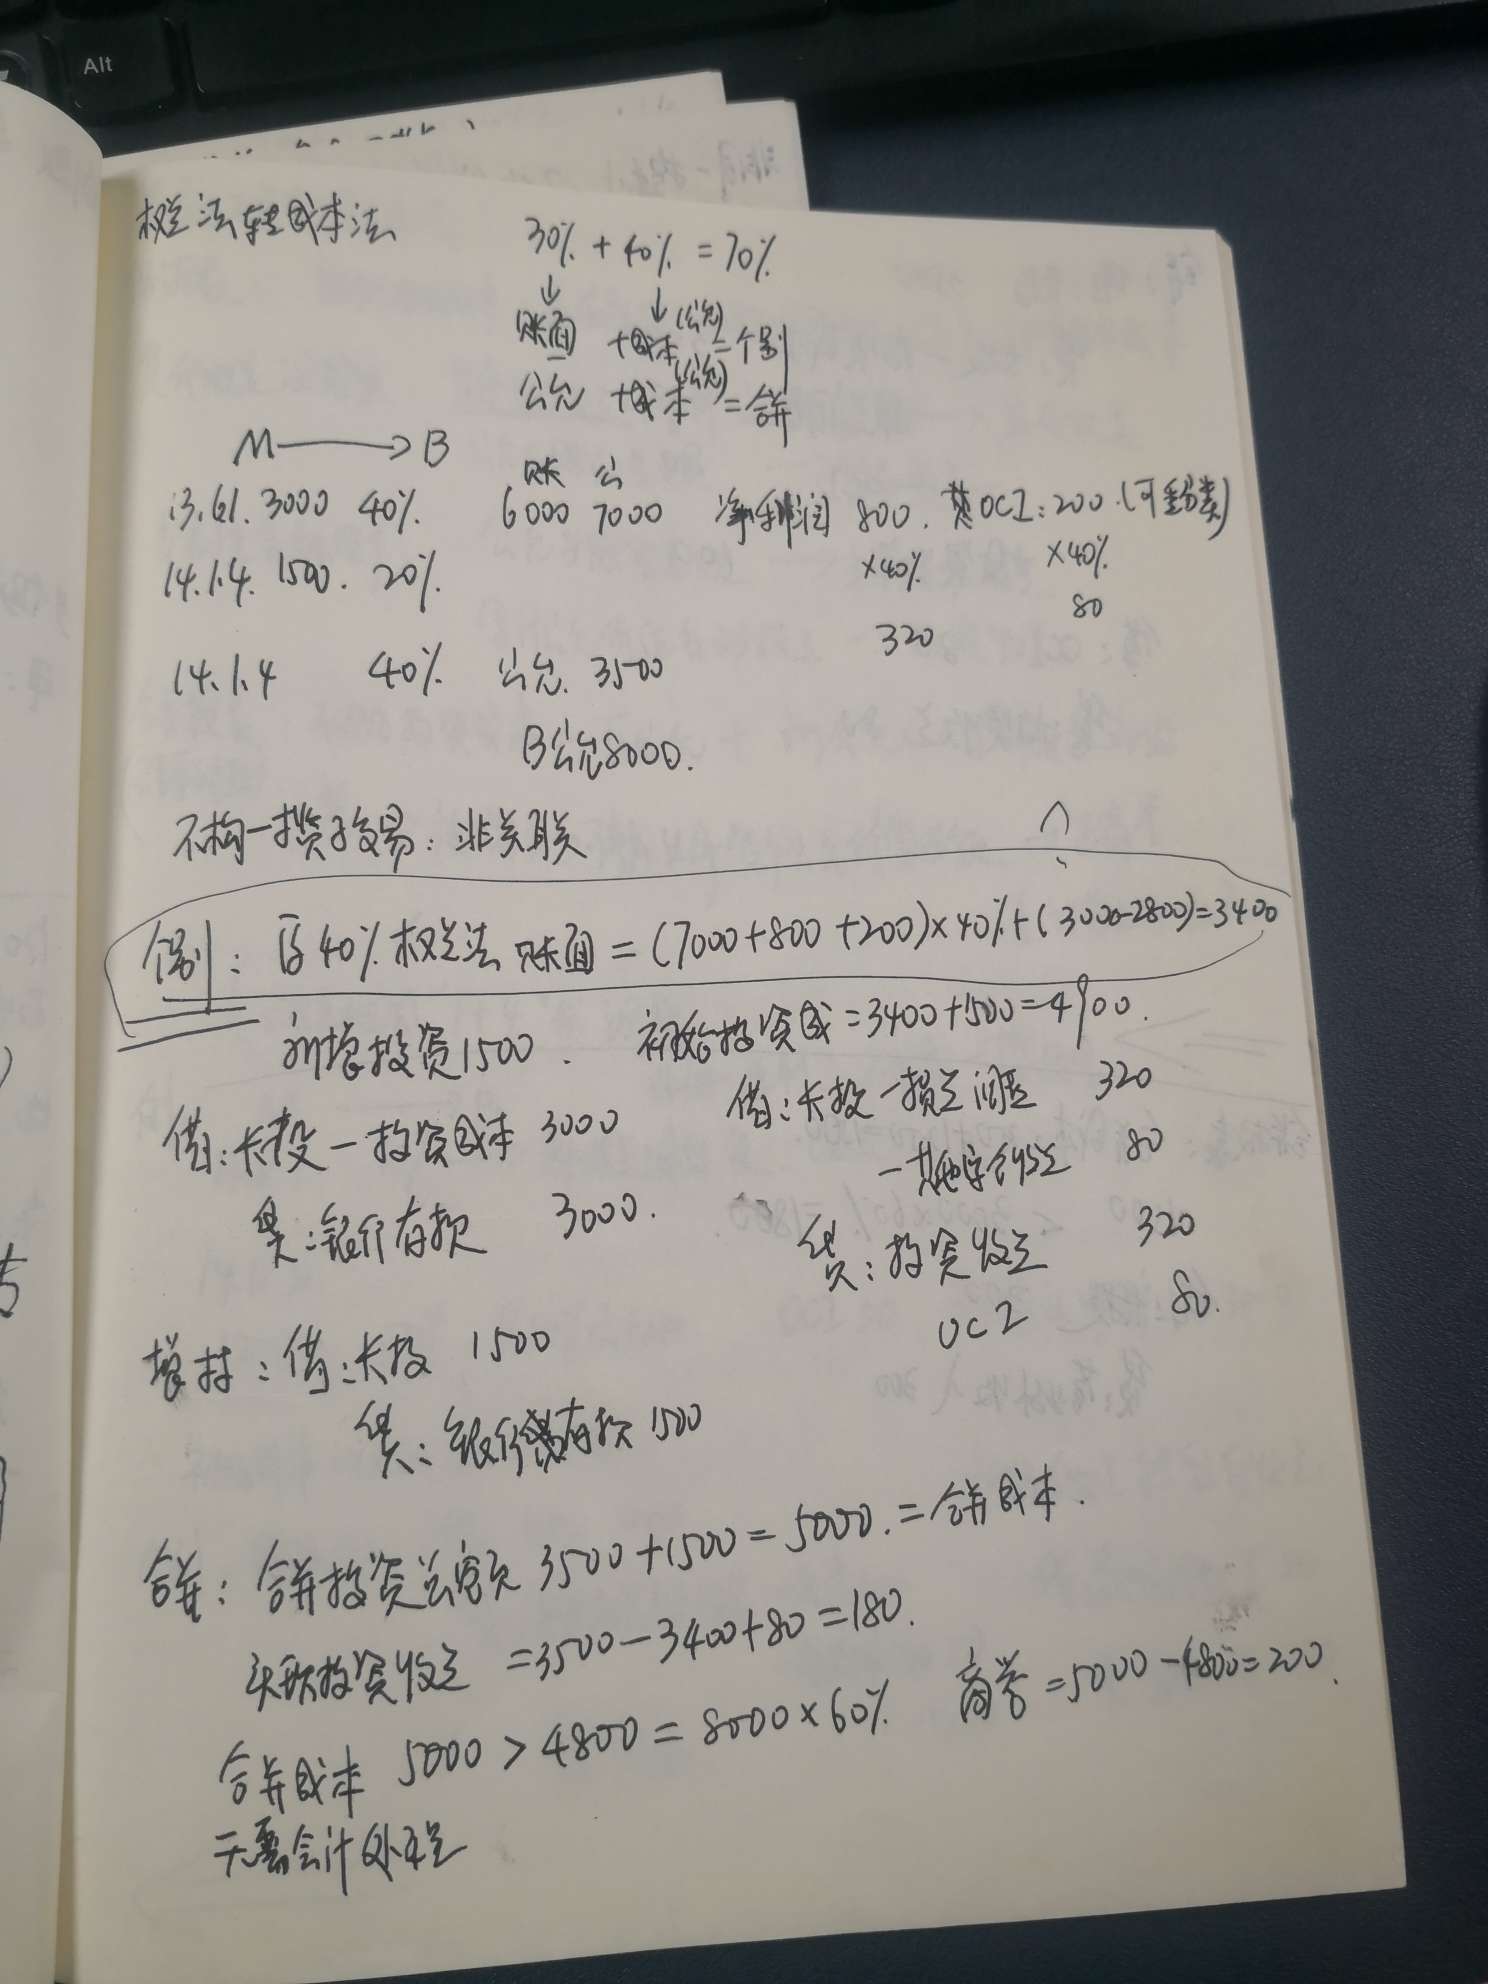 Alt
权益法转成本法
30% + 40% = 70%
↓ ↓
账面 + 成本(公允) = 个别
公允 + 成本(公允) = 合并
M → B
账 公
13.6.1. 3000 40%. 6000 7000 净利润 800. 其OCI:200.(可重分类)
×40% ×40%
14.1.4. 1500. 20%. 320 80
14.1.4 40% 公允. 3500
B公允8000.
不构一揽子交易:非关联
个别:原40%权益法账面=(7000+800+200)×40%+(3000-2800)=3400
新增投资1500. 初始投资成=3400+1500=4900.
借:长投-投资成本 3000
贷:银行存款 3000.
借:长投-损益调整 320
-其他综合收益 80
贷:投资收益 320
OCI 80.
增持:借:长投 1500
贷:银行存款 1500
合并:合并投资总额 3500+1500=5000.=合并成本.
投资收益 =3500-3400+80=180.
合并成本 5000 > 4800 = 8000×60% 商誉=5000-4800=200.
无需会计处理